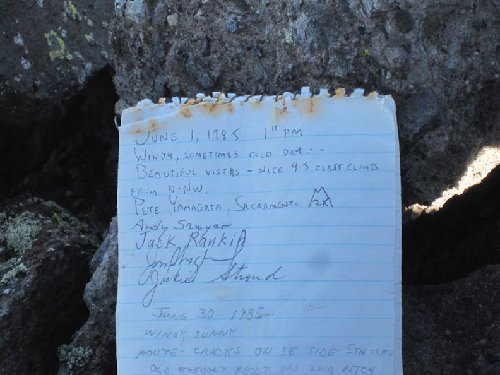 JUNE 1, 1985 1 PM
WINDY, SOMETIMES COLD DAY--
BEAUTIFUL VISTAS - NICE 4.5 CLASS CLIMB
FROM N-NW.
PETE YAMAGATA, SACRAMENTO
Andy
Jack Rankin
Stroud
JUNE 30 1985
WINDY SUNNY
ROUTE - CRACKS ON SE SIDE 5TH
OLD ON 2ND PITCH